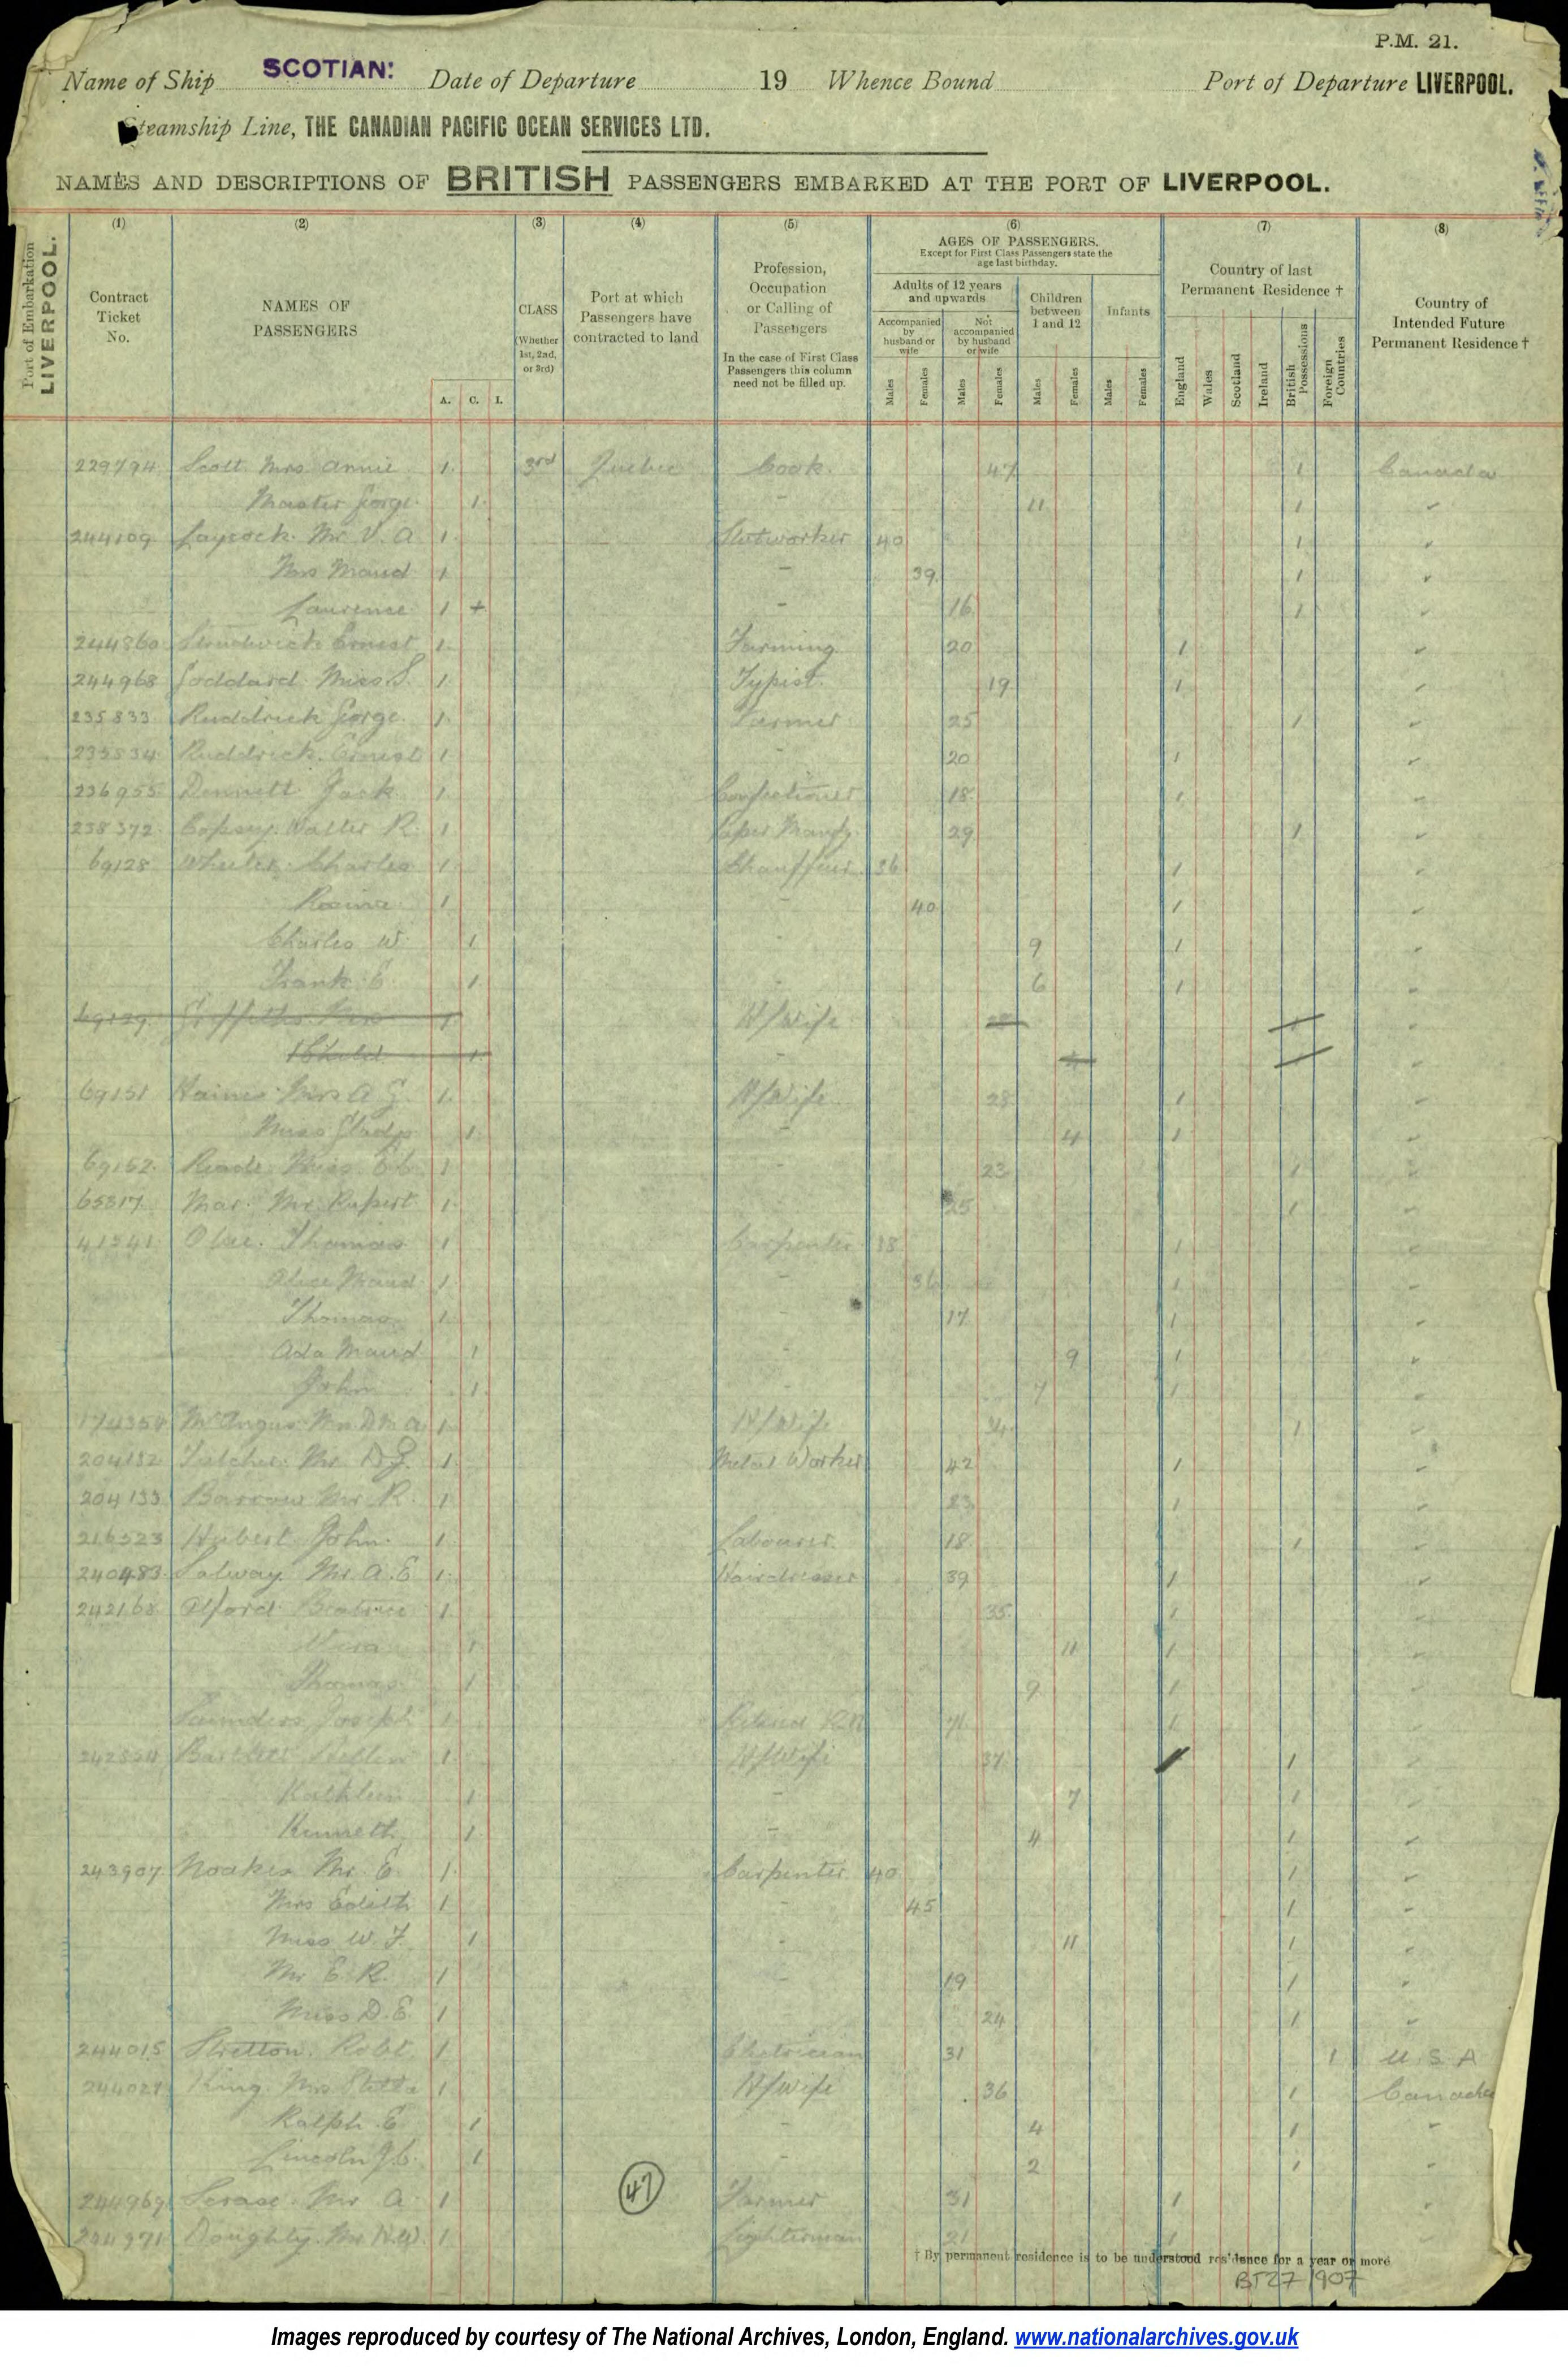 P.M. 21.
Name of Ship SCOTIAN: Date of Departure 19 Whence Bound Port of Departure LIVERPOOL.
Steamship Line, THE CANADIAN PACIFIC OCEAN SERVICES LTD.
NAMES AND DESCRIPTIONS OF BRITISH PASSENGERS EMBARKED AT THE PORT OF LIVERPOOL.
Port of Embarkation LIVERPOOL.
(1) Contract Ticket No.
(2) NAMES OF PASSENGERS
A. C. I.
(3) CLASS (Whether 1st, 2nd, or 3rd)
(4) Port at which Passengers have contracted to land
(5) Profession, Occupation or Calling of Passengers
In the case of First Class Passengers this column need not be filled up.
(6) AGES OF PASSENGERS.
Except for First Class Passengers state the age last birthday.
Adults of 12 years and upwards
Accompanied by husband or wife
Not accompanied by husband or wife
Children between 1 and 12
Infants
Males Females Males Females Males Females Males Females
(7) Country of last Permanent Residence †
England Wales Scotland Ireland British Possessions Foreign Countries
(8) Country of Intended Future Permanent Residence †
229794 Scott Mrs Annie 1 3rd Quebec Cook. 47 1 Canada
Master George 1 - 11 1 "
244109 Laycock Mr V. A 1 40 1 "
Mrs Maud 1 - 39 1 "
Laurence 1 + - 16 1 "
244860 Ernest 1 Farming 20 1 "
244968 Goddard Miss S. 1 Typist. 19 1 "
235833 Ruddrick George 1 Farmer 25 1 "
235834 Ruddrick Ernest 1 - 20 1 "
236955 Dennett Jack 1 Confectioner 18 1 "
238372 Copsey Walter R. 1 Paper Manfg. 29 1 "
69128 Wheeler Charles 1 Chauffeur 36 1 "
Rosina 1 - 40 1 "
Charles W. 1 - 9 1 "
Frank E. 1 - 6 1 "
69129 Griffiths Mrs 1 H/Wife 1
1 Child 1 - 1
69151 Mrs A G. 1 H/Wife 28 1 "
Miss Gladys 1 - 4 1 "
69152 Reade Miss 1 - 23 1 "
65317 Mar. Mr Rupert 1 - 25 1 "
41341 Thomas 1 Carpenter 38 1 "
Alice Maud 1 - 36 1 "
Thomas 1 - 17 1 "
Ada Maud 1 - 9 1 "
John 1 - 7 1 "
174354 McAngus Mrs 1 H/Wife 1 "
204132 Mr 1 Metal Worker 42 1 "
204133 Barrow Mr R. 1 23 1 "
216523 Hubert John 1 Labourer 18 1 "
240483 Salway Mr A. E 1 Hairdresser 39 1 "
242168 Alford Beatrice 1 35 1 "
Vera 1 11 1 "
Thomas 1 9 1 "
Saunders Joseph 1 Retired R.N 71 1 "
242854 Bartlett Nellie 1 H/Wife 37 1 "
Kathleen 1 - 7 1 "
Kenneth 1 - 4 1 "
243907 Noakes Mr. E. 1 Carpenter 40 1 "
Mrs Edith 1 - 45 1 "
Miss W. F. 1 - 11 1 "
Mr E. R. 1 - 19 1 "
Miss D. E. 1 - 24 1 "
244015 Stretton. Robt. 1 Electrician 31 1 U. S. A
244027 King Mrs Stella 1 H/wife 36 1 Canada
Ralph E. 1 - 4 1 "
Lincoln J. C. 1 - 2 1 "
47
244969 Scrase. Mr A. 1 Farmer 31 1 "
244971 Doughty. Mr 1 Lighterman 21 1 "
† By permanent residence is to be understood residence for a year or more
BT27/907
Images reproduced by courtesy of The National Archives, London, England. www.nationalarchives.gov.uk